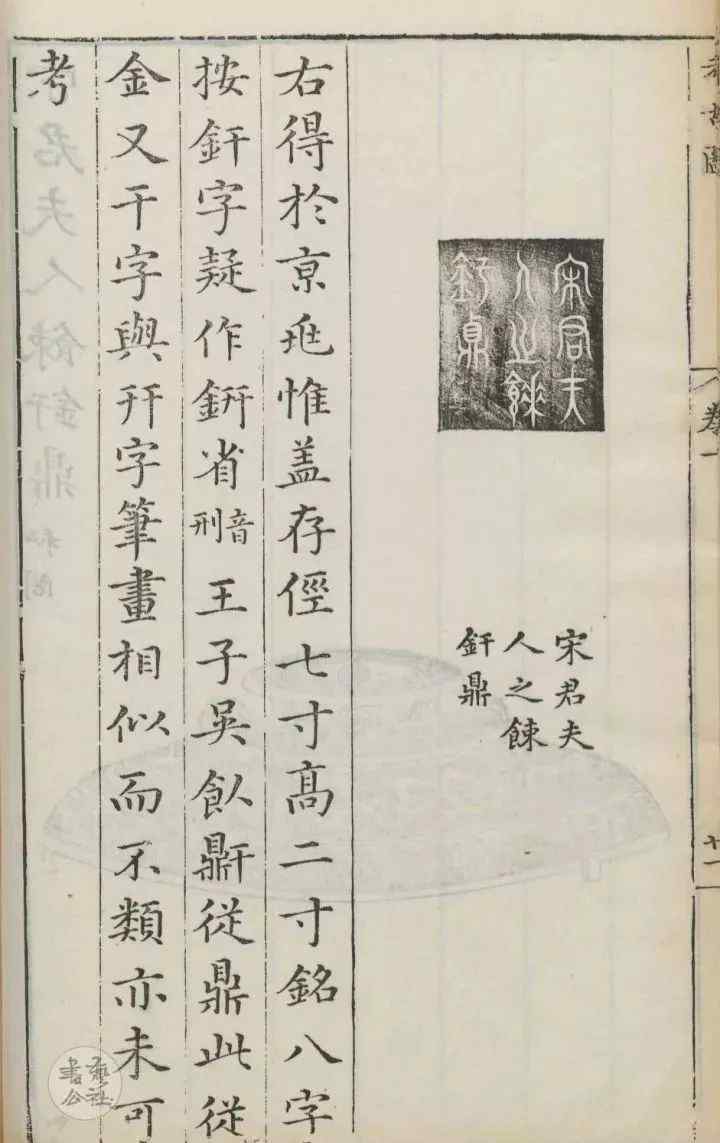 考古圖
卷一
廿一
宋君夫
人之餗
釬鼎
宋君夫
人之餗
釬鼎
右得於京兆惟盖存徑七寸髙二寸銘八字
按釬字疑作鈃省音刑王子吳飤⿰鼎干從鼎此從
金又干字與幵字筆畫相似而不類亦未可
考
書藝公社